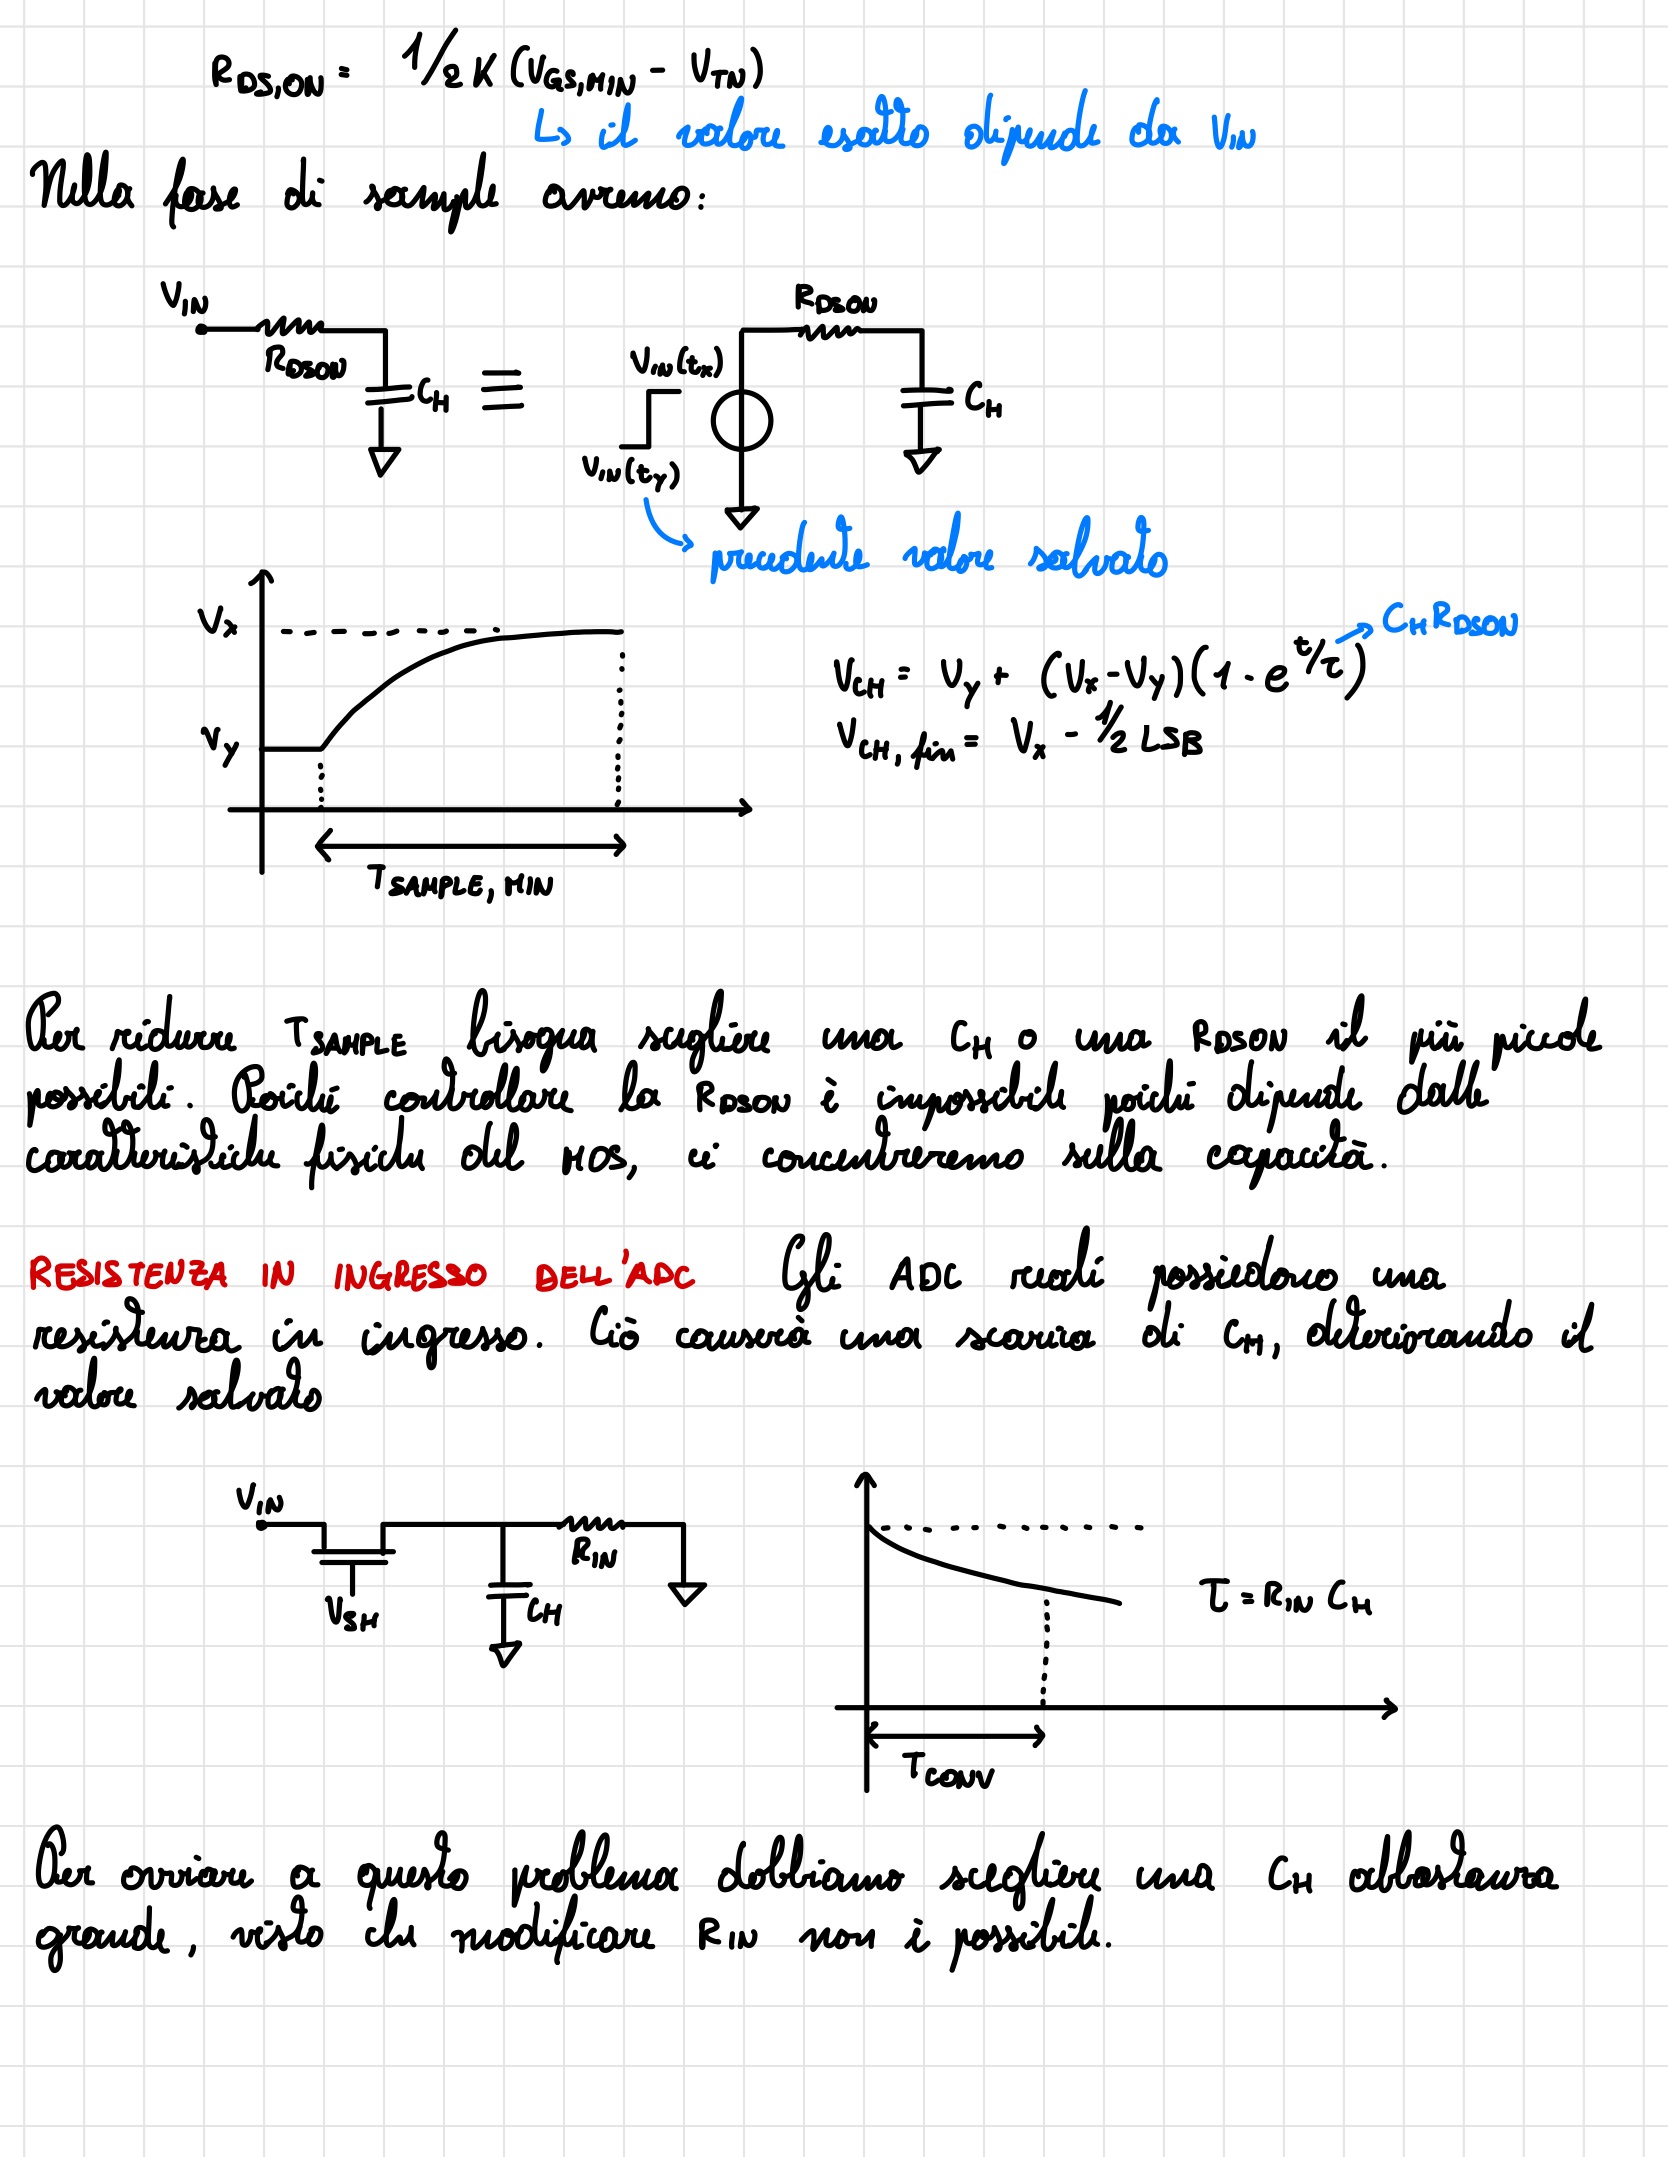 R_DS,ON = 1/2 K (V_GS,MIN - V_TN)
↳ il valore esatto dipende da V_IN
Nella fase di sample avremo:
V_IN
R_DSON
C_H
≡
V_IN(t_x)
V_IN(t_y)
R_DSON
C_H
precedente valore salvato
V_x
V_y
T_SAMPLE, MIN
C_H R_DSON
V_CH = V_y + (V_x - V_y)(1 - e^t/τ)
V_CH, fin = V_x - 1/2 LSB
Per ridurre T_SAMPLE bisogna scegliere una C_H o una R_DSON il più piccole
possibili. Poiché controllare la R_DSON è impossibile poiché dipende dalle
caratteristiche fisiche del MOS, ci concentreremo sulla capacità.
RESISTENZA IN INGRESSO DELL'ADC Gli ADC reali possiedono una
resistenza in ingresso. Ciò causerà una scarica di C_H, deteriorando il
valore salvato
V_IN
R_IN
V_SH
C_H
τ = R_IN C_H
T_CONV
Per ovviare a questo problema dobbiamo scegliere una C_H abbastanza
grande, visto che modificare R_IN non è possibile.